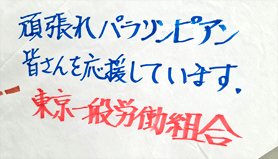 頑張れパラリンピアン
皆さんを応援しています.
東京一般労働組合